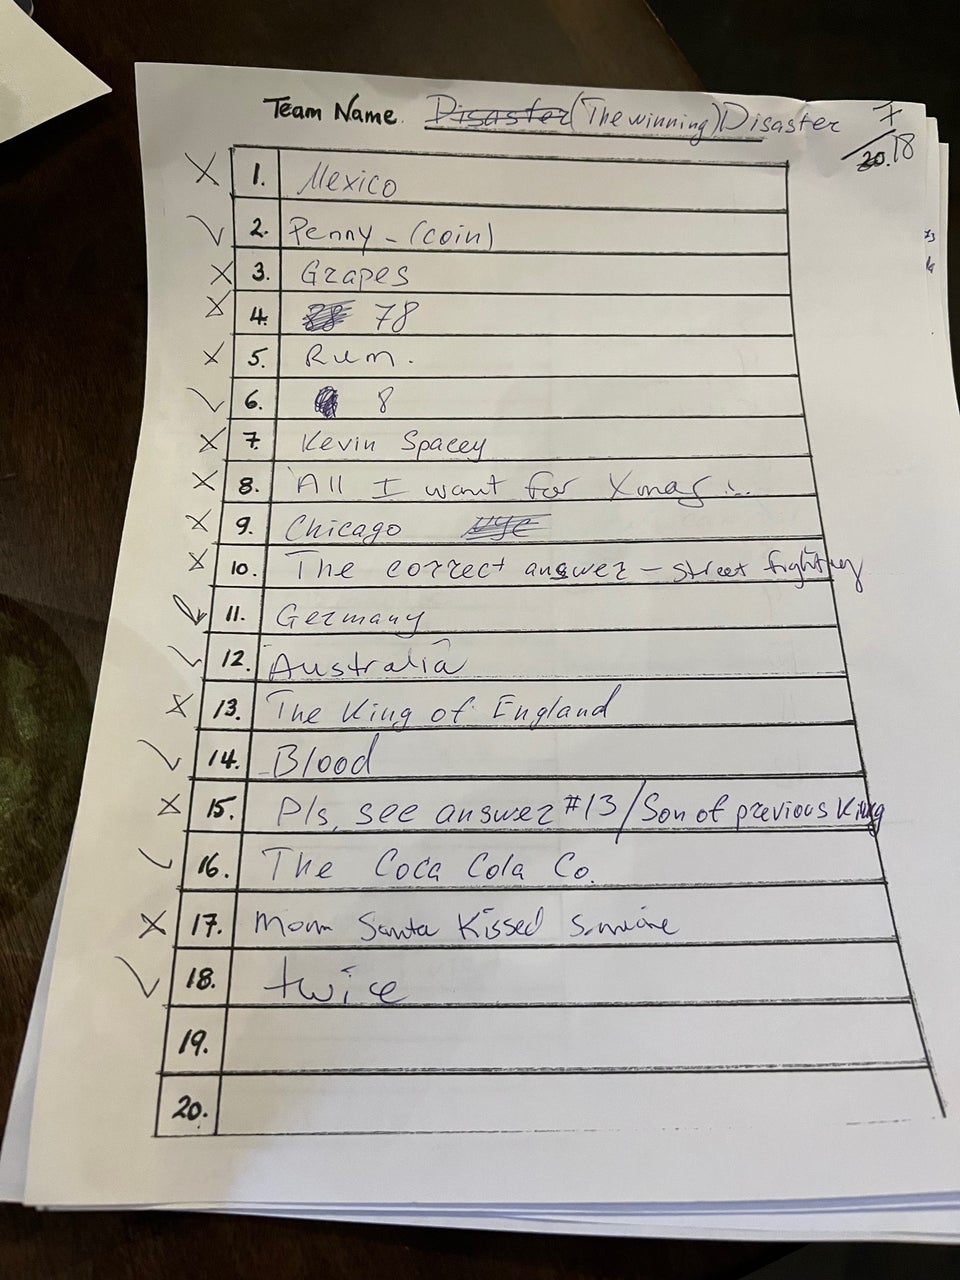 Team Name. Disaster (The winning) Disaster
7
20.18
1. Mexico
2. Penny - (coin)
3. Grapes
4. 78
5. Rum.
6. 8
7. Kevin Spacey
8. 'All I want for Xmas ...
9. Chicago NYC
10. The correct answer - street fighting
11. Germany
12. Australia
13. The King of England
14. Blood
15. Pls, see answer #13/Son of previous King
16. The Coca Cola Co.
17. Mom Santa Kissed Someone
18. twice
19.
20.